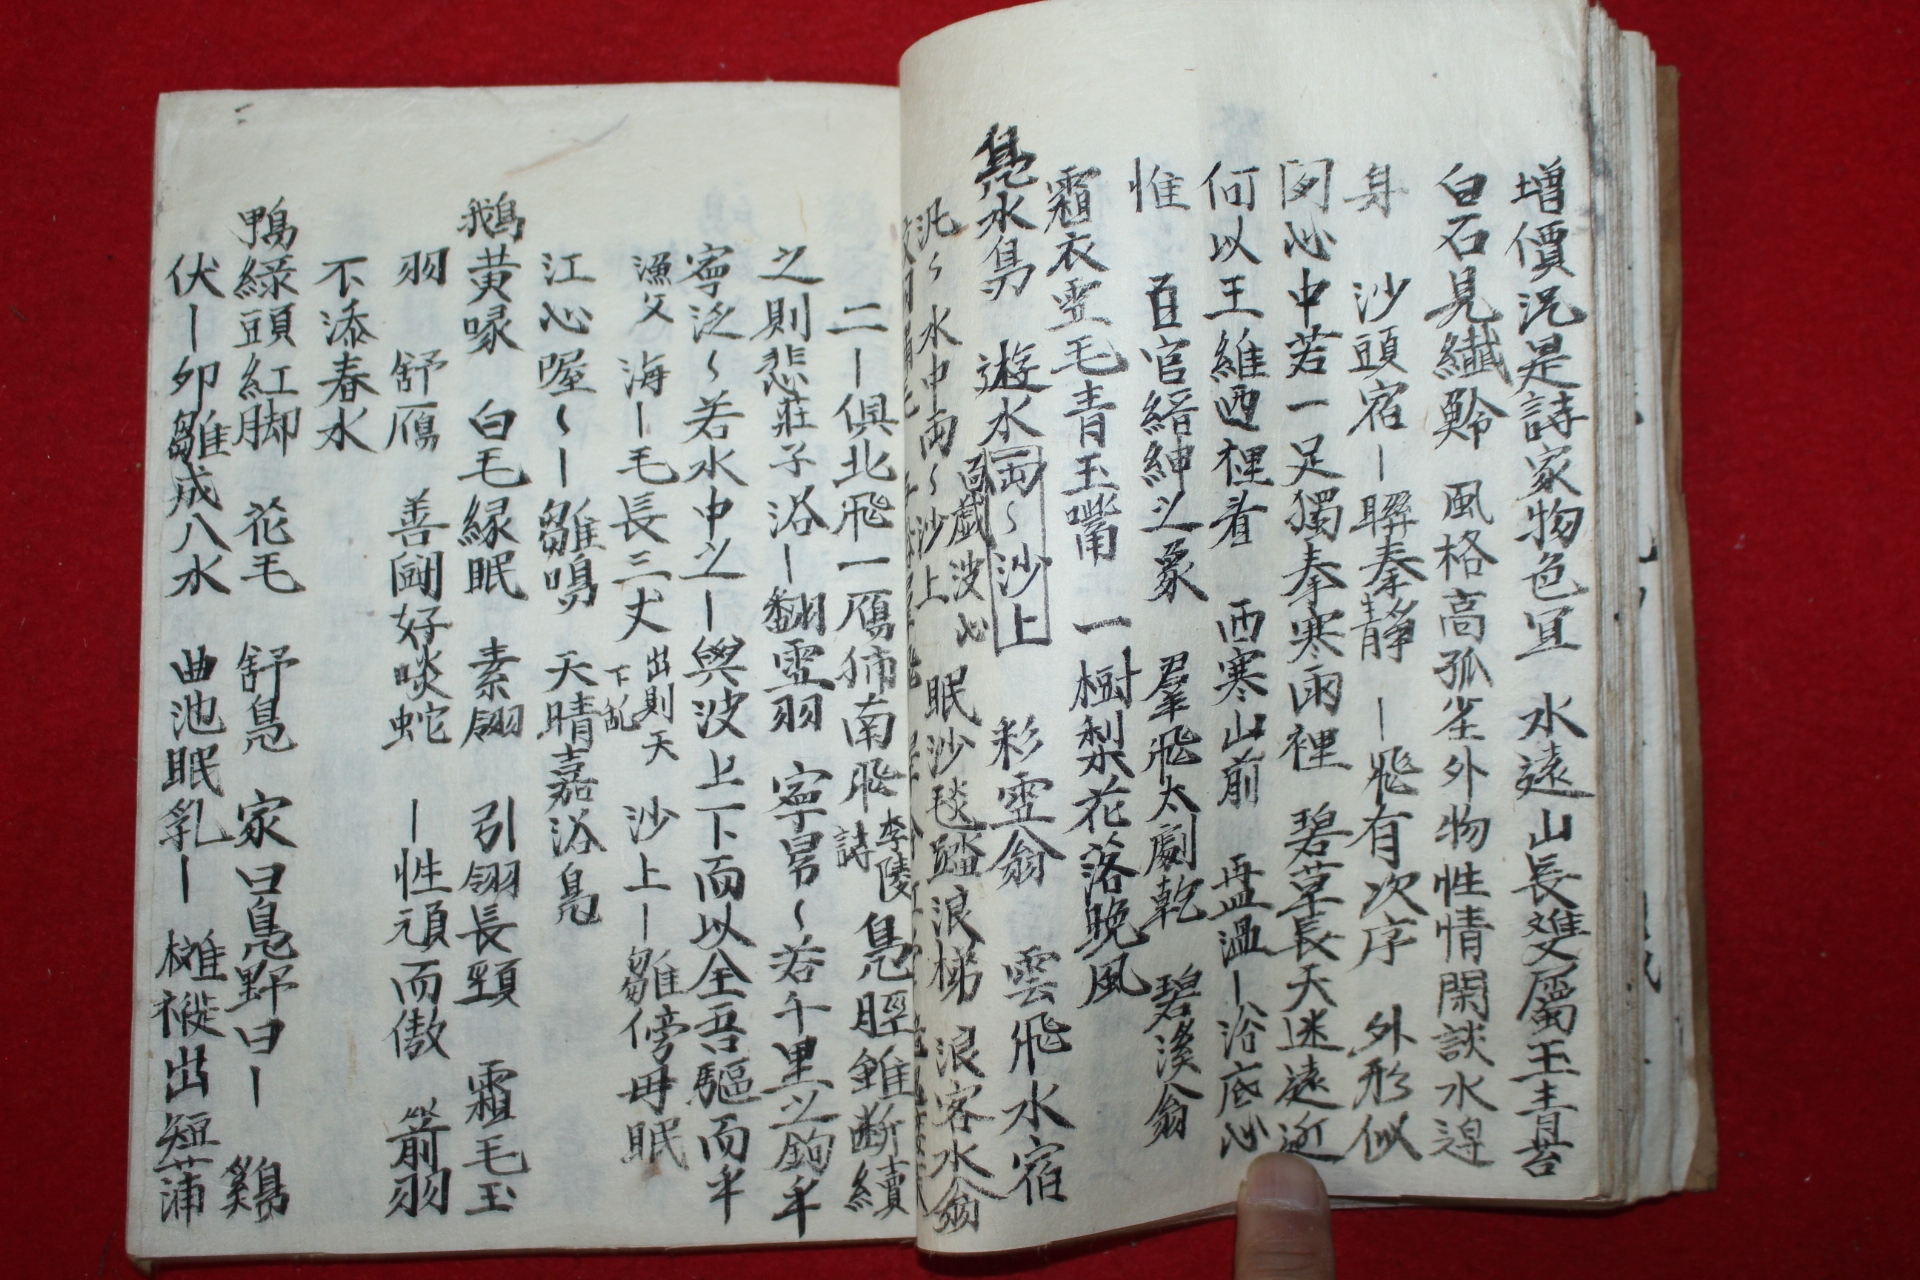 增價況是詩家物色宜 水遠山長雙屬玉青苔
白石見纖鱗 風格高孤生外物性情閑談水邊
身 沙頭宿〡聯拳靜 〡飛有次序 外形似
閑心中若一足獨拳寒雨裡 碧草長天迷遠近
何以王維西裡看 西寒山前 再溫〡浴底心
惟 百官縉紳之象 羣飛太劇乾 碧溪翁
霜衣雪毛青玉嘴 一樹梨花落晚風
鳧水鳥 遊水両〻沙上 彩雪翁 雲飛水宿
百戲波心
汎〻水中両〻沙上 眠沙毯踏浪梯 浪客水翁
二〡俱北飛一鴈獨南飛 李陵詩 鳧脛雖斷續
之則悲莊子浴〡翻雪羽 寧昂〻若千里之駒乎
寧泛〻若水中之〡與波上下而以全吾軀而乎
漁父 海〡毛長三丈 出則天下乱 沙上〡雛傍母眠
江心喔〻〡雛鳴 天晴嘉浴鳧
鵝黃喙 白毛緑眠 素翎 引翎長頸 霜毛玉
羽 舒鴈 善鬪好啖蛇 〡性頑而傲 箭羽
不添春水
鴨綠頭紅脚 花毛 舒鳧 家曰鳧野曰〡 鷄
伏〡卵雛成八水 曲池眠乳〡 離褷出短蒲